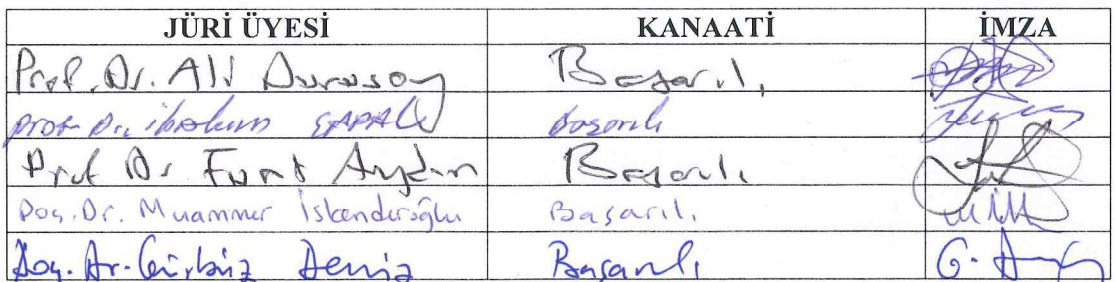 JÜRİ ÜYESİ KANAATİ İMZA
Prof. Dr. Ali Durusoy Başarılı
Prof. Dr. İbrahim ÇAPAK Başarılı
Prof Dr Fuat Aydın Başarılı
Doç. Dr. Muammer İskenderoğlu Başarılı
Doç. Dr. Gürbüz Deniz Başarılı